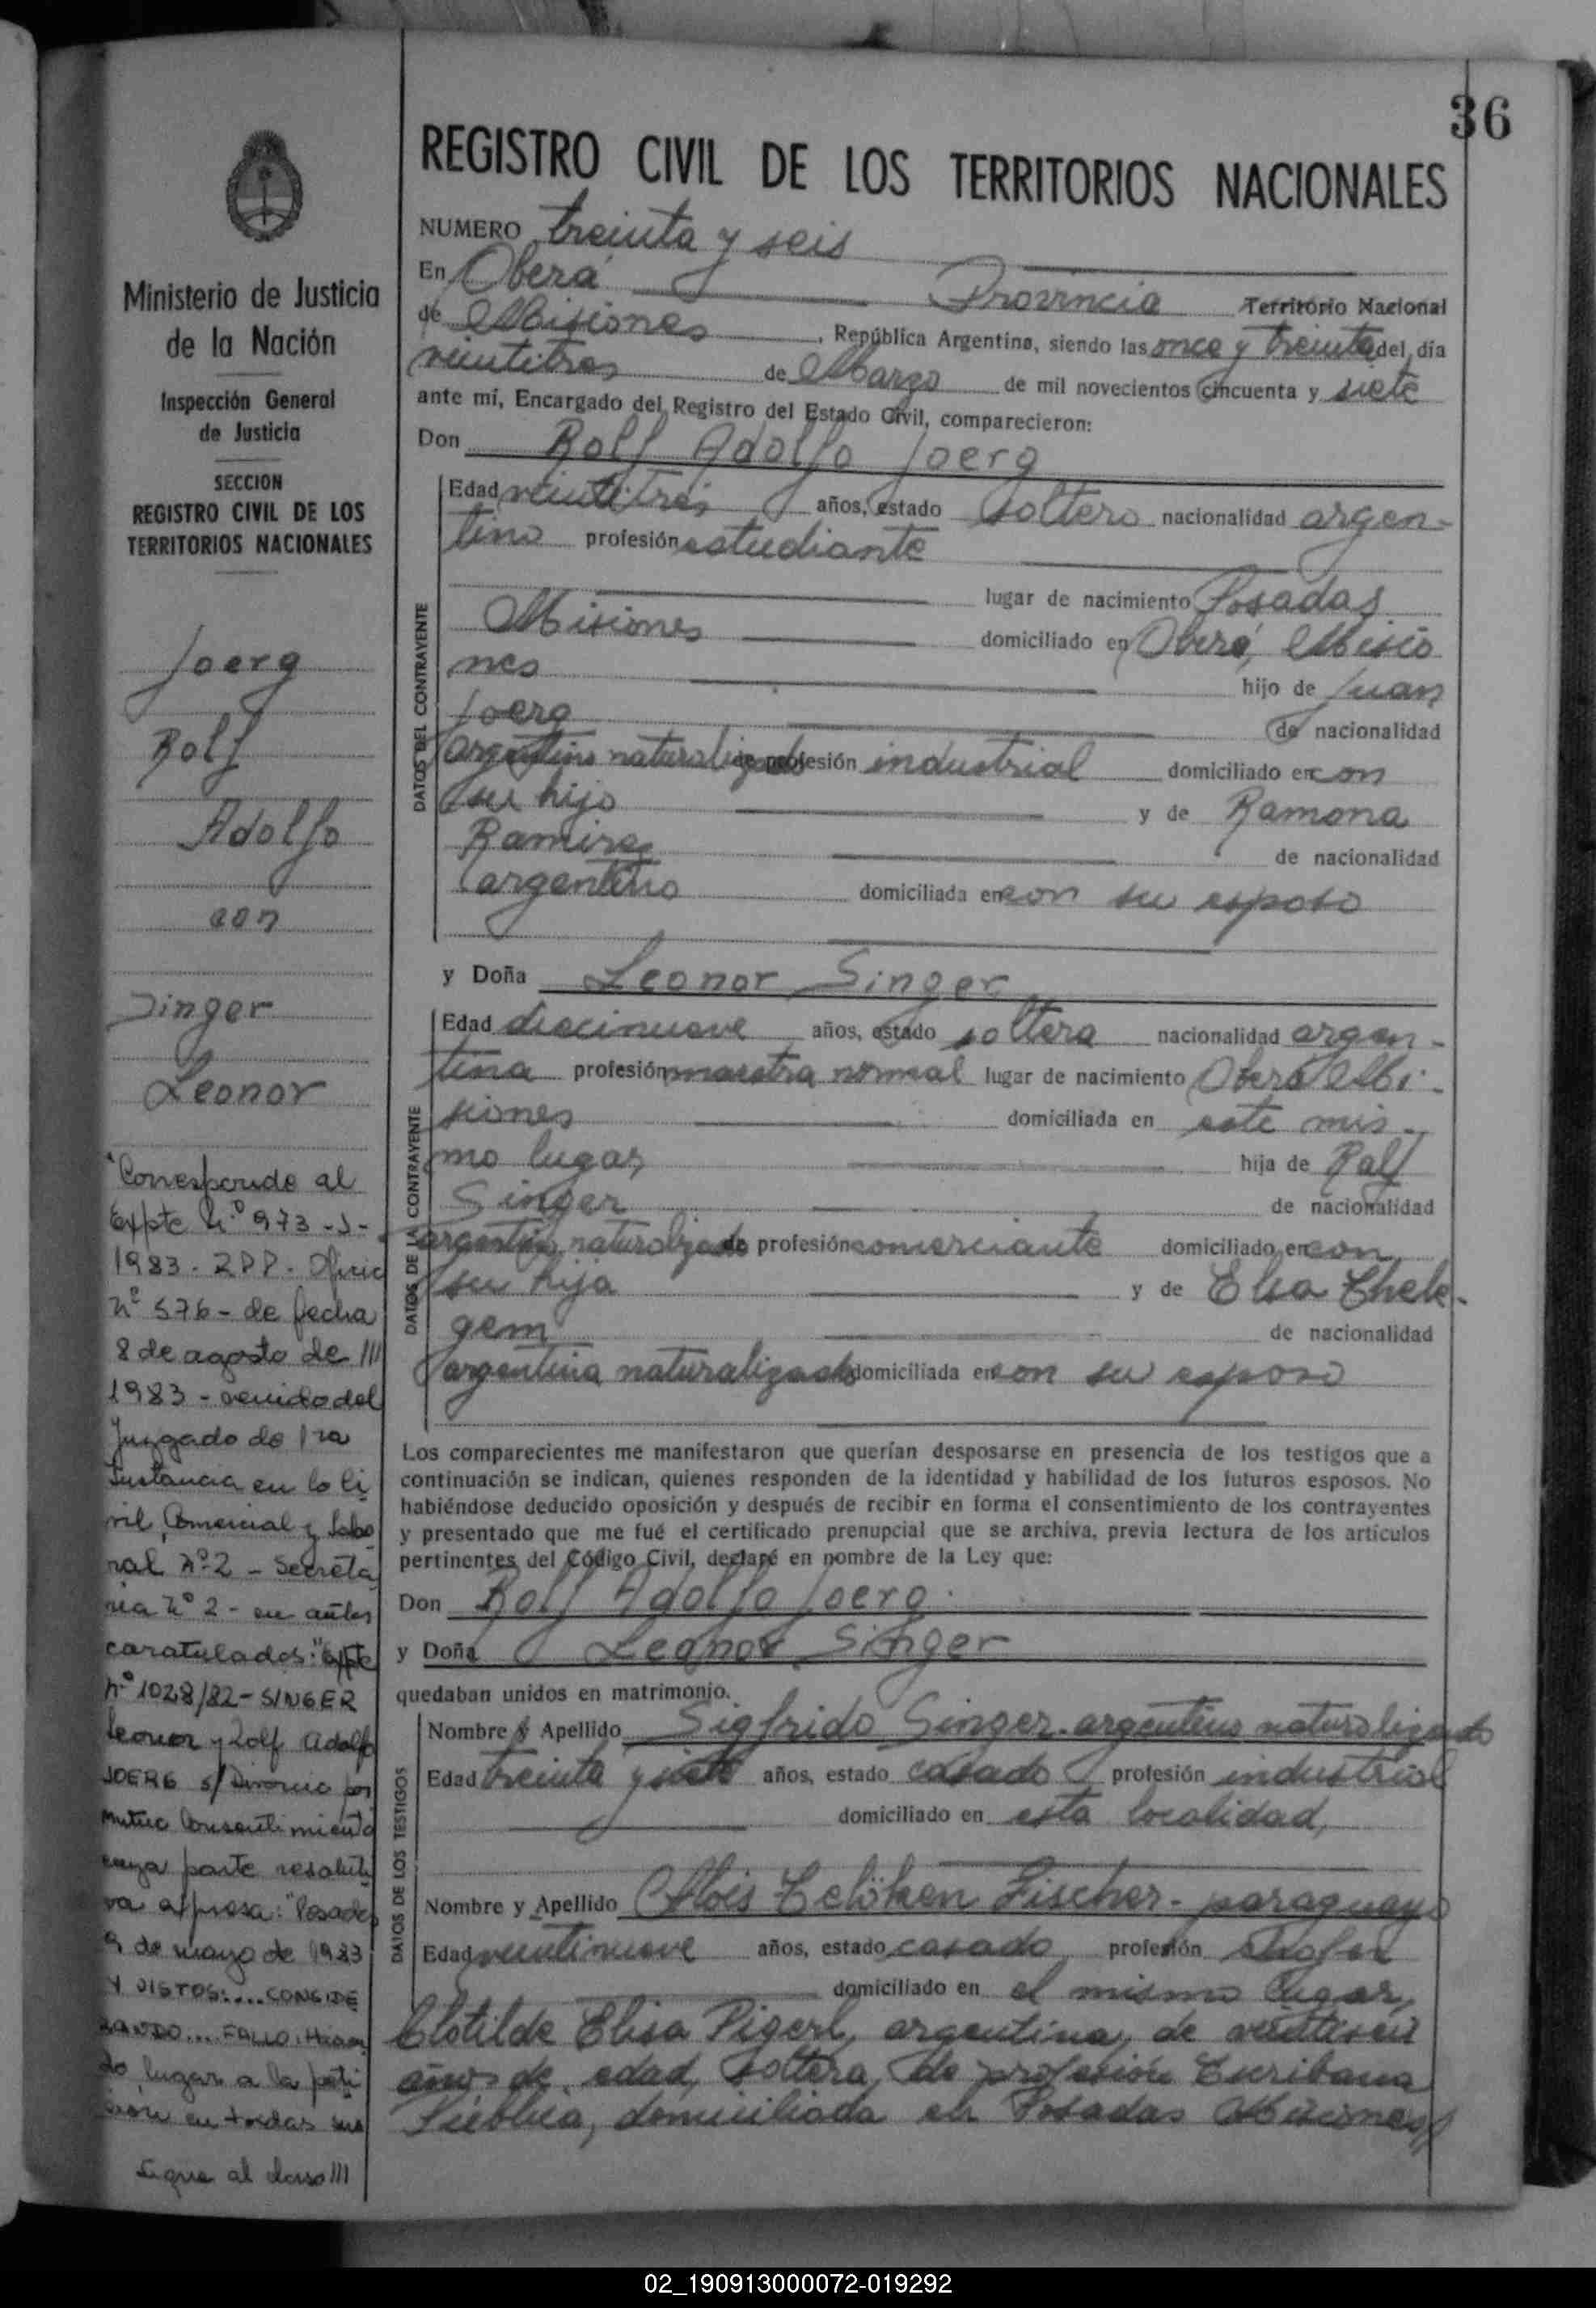 36
REGISTRO CIVIL DE LOS TERRITORIOS NACIONALES
NUMERO treinta y seis
En Oberá Provincia Territorio Nacional
de Misiones, República Argentina, siendo las once y treinta del día
veintitres de Marzo de mil novecientos cincuenta y siete
ante mí, Encargado del Registro del Estado Civil, comparecieron:
Don Rolf Adolfo Joerg
DATOS DEL CONTRAYENTE
Edad veintitres años, estado soltero nacionalidad argen-
tino profesión estudiante
lugar de nacimiento Posadas
Misiones domiciliado en Oberá, Misio
nes hijo de Juan
Joerg de nacionalidad
argentino naturalizado de profesión industrial domiciliado en con
su hijo y de Ramona
Ramirez de nacionalidad
argentina domiciliada en con su esposo
y Doña Leonor Singer
DATOS DE LA CONTRAYENTE
Edad diecinueve años, estado soltera nacionalidad argen-
tina profesión maestra normal lugar de nacimiento Oberá Mi-
siones domiciliada en este mis-
mo lugar, hija de Ralf
Singer de nacionalidad
argentino naturalizado de profesión comerciante domiciliado en con
su hija y de Elsa Thele-
gem de nacionalidad
argentina naturalizada domiciliada en con su esposo
Los comparecientes me manifestaron que querían desposarse en presencia de los testigos que a
continuación se indican, quienes responden de la identidad y habilidad de los futuros esposos. No
habiéndose deducido oposición y después de recibir en forma el consentimiento de los contrayentes
y presentado que me fué el certificado prenupcial que se archiva, previa lectura de los artículos
pertinentes del Código Civil, declaré en nombre de la Ley que:
Don Rolf Adolfo Joerg.
y Doña Leonor Singer
quedaban unidos en matrimonio.
DATOS DE LOS TESTIGOS
Nombre y Apellido Sigfrido Singer-argentino naturalizado
Edad treinta y siete años, estado casado profesión industrial
domiciliado en esta localidad,
Nombre y Apellido Alois Fischer- paraguayo
Edad veintinueve años, estado casado profesión chofer
domiciliado en el mismo lugar,
Clotilde Elisa Pigerl, argentina, de veintiseis
años de edad, soltera, de profesión Escribana
Pública, domiciliada en Posadas Misiones//
Ministerio de Justicia
de la Nación
Inspección General
de Justicia
SECCION
REGISTRO CIVIL DE LOS
TERRITORIOS NACIONALES
Joerg
Rolf
Adolfo
con
Singer
Leonor
"Corresponde al
Expte N.° 973-J-
1983. RPP. Oficio
N° 576- de fecha
8 de agosto de ///
1983- venido del
Juzgado de 1ra
Instancia en lo Ci
vil, Comercial y Labo
ral N°2 - Secreta
ria N° 2- en autos
caratulados: "Expte
N° 1028/82-SINGER
Leonor y Rolf Adolfo
JOERG s/ Divorcio por
Mutuo Consentimiento
cuya parte resoluti
va expresa: "Posadas
9 de mayo de 1983
Y VISTOS:.... CONSIDE
RANDO... FALLO: Hacien
do lugar a la peti
ción en todas sus
Sigue al dorso ///
02_190913000072-019292